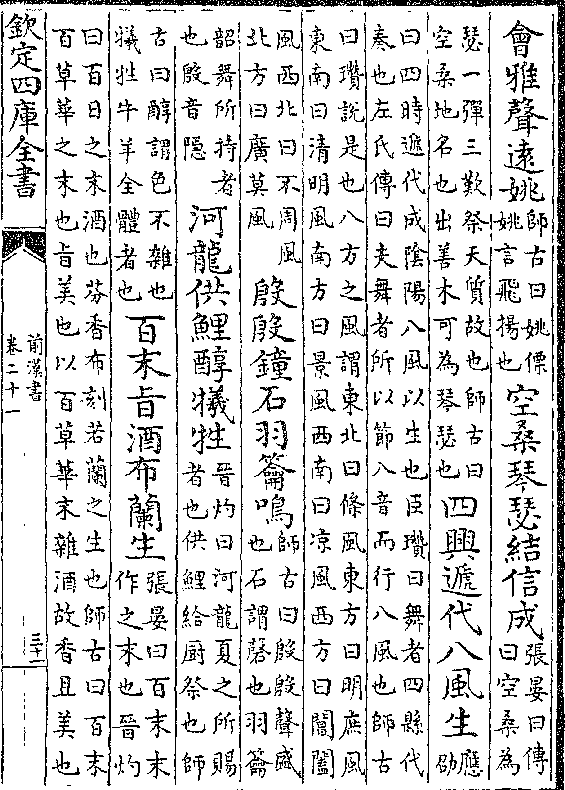 會雅聲遠姚師古曰姚僄姚言飛揚也空桑琴瑟結信成張晏曰傳曰空桑為
瑟一彈三歎祭天質故也師古曰空桑地名也出善木可為琴瑟也四興遞代八風生應劭
曰四時遞代成陰陽八風以生也臣瓚曰舞者四縣代奏也左氏傳曰夫舞者所以節八音而行八風也師古
曰瓚說是也八方之風謂東北曰條風東方曰明庶風東南曰清明風南方曰景風西南曰涼風西方曰閶闔
風西北曰不周風北方曰廣莫風殷殷鐘石羽籥鳴師古曰殷殷聲盛也石謂磬也羽籥
韶舞所持者也殷音隱河龍供鯉醇犧牲晉灼曰河龍夏之所賜者也供鯉給厨祭也師
古曰醇謂色不雜也犧牲牛羊全體者也百末旨酒布蘭生張晏曰百末末作之末也晉灼
曰百日之末酒也芬香布刻若蘭之生也師古曰百末百草華之末也旨美也以百草華末雜酒故香且美也
欽定四庫全書
前漢書
卷二十一